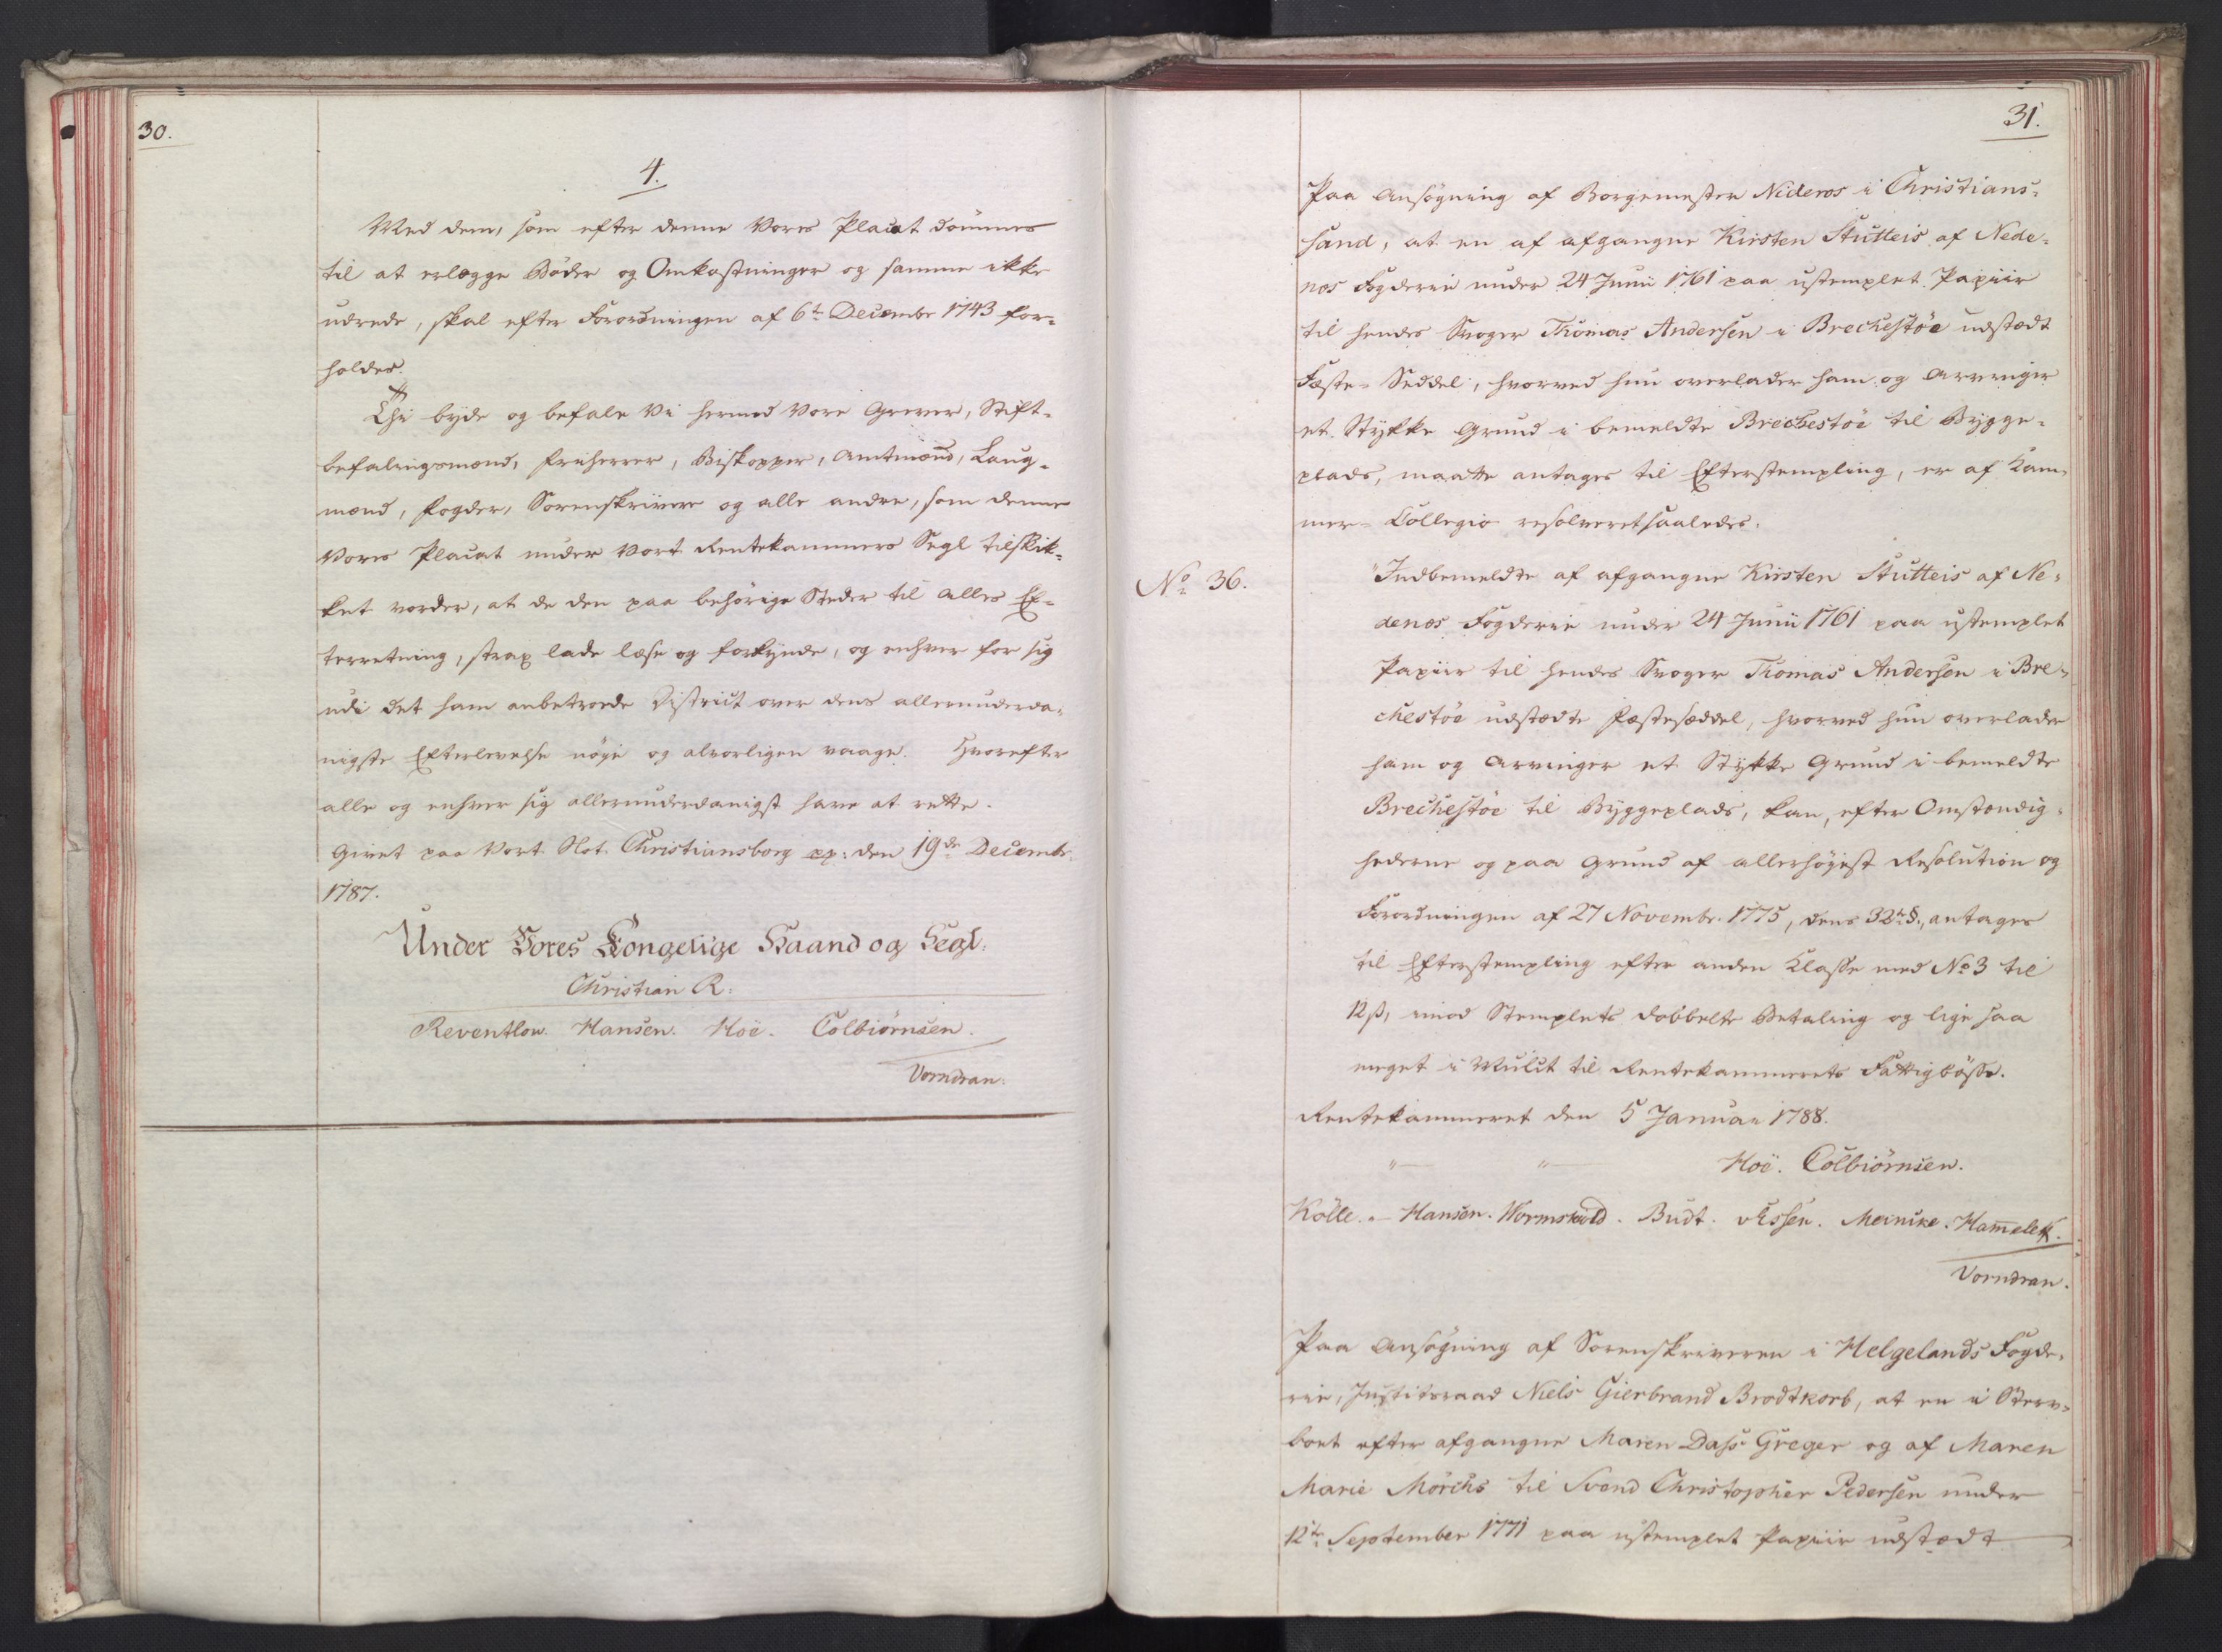 30.
4.
Med dem, som efter denne Vores Placat dømmes
til at erlægge Bøder og Omkostninger og samme ikke
udrede, skal efter Forordningen af 6te Decembr 1743 for-
holdes.
Thi byde og befale Vi hermed Vore Grever, Stift-
befalingsmænd, Friherrer, Biskopper, Amtmænd, Laug-
mænd, Fogder, Sorenskrivere og alle andre, som denne
Vores Placat under Vort Rentekammers Segl tilskik-
ket vorder, at de den paa behørige Steder til alles Ef-
terretning, strax lade læse og forkynde, og enhver for sig
udi det ham anbetroede District over dens allerunderda-
nigste Efterlevelse nøye og alvorligen vaage. Hvorefter
alle og enhver sig allerunderdanigst have at rette.
Givet paa Vort Slot Christiansborg pp: den 19de Decembr.
1787.
Under Vores Kongelige Haand og Segl.
Christian R:
Reventlow. Hansen. Hoë. Colbiørnsen.
Vorndran.
31.
Paa Ansøgning af Borgemester Nideros i Christians-
sand, at en af afgangne Kirsten Stutteis af Nede-
nes Fogderie under 24 Junii 1761 paa ustemplet Papiir
til hendes Svoger Thomas Andersen i Brechestøe udstædt
Fæste-Seddel, hvorved hun overlader ham og Arvinger
et Stykke Grund i bemeldte Brechestøe til Bygge-
plads, maatte antages til Efterstempling, er af Kam-
mer-Collegio resolveret saaledes.
No 36.
"Indbemeldte af afgangne Kirsten Stutteis af Ne-
denes Fogderie under 24 Junii 1761 paa ustemplet
Papiir til hendes Svoger Thomas Andersen i Bre-
chestøe udstædte Fæstesæddel, hvorved hun overlader
ham og Arvinger et Stykke Grund i bemeldte
Brechestøe til Byggeplads, kan, efter Omstændig-
hederne og paa Grund af allerhøyest Resolution og
Forordningen af 27 Novembr. 1775, dens 32te §., antages
til Efterstempling efter anden Classe med No 3 til
12 ß, imod Stemplets dobbelte Betaling og lige saa
meget i Mulct til Rentekammerets Fattigbøsse.
Rentekammeret den 5 Januar 1788.
"— "— Hoë. Colbiørnsen.
Kölle. — Hansen. Wormskiold. Budt. vEssen. Meinike. Ham̅eleff.
Vorndran.
Paa Ansøgning af Sorenskriveren i Helgelands Fogde-
rie, Justitsraad Niels Gierbrand Brodtkorb, at en i Sterv-
boet efter afgangne Maren Dass Greger og af Maren
Marie Mörchs til Svend Christopher Pedersen under
12te September 1771 paa ustemplet Papiir udstædt